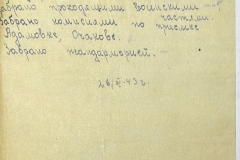 Забрано проходящими воинскими
Забрано комисиями по приёмке
частями.
Адамовке, Очакове.
Забрано жандармерией.
26/XI-43г.